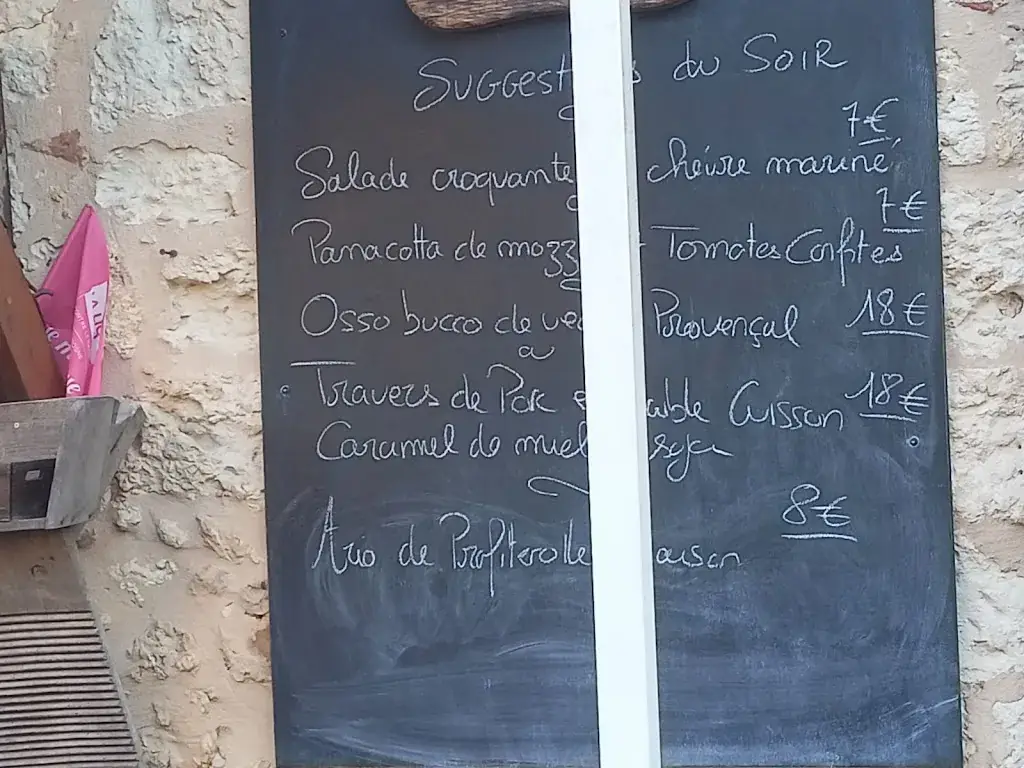 Suggest s du Soir
7€
Salade croquante chèvre mariné
7€
Panacotta de mozz Tomates Confites
Osso bucco de ve Provençal 18€
Travers de Porc Cuisson 18€
Caramel de miel soja
8€
Trio de Profiterolle aison